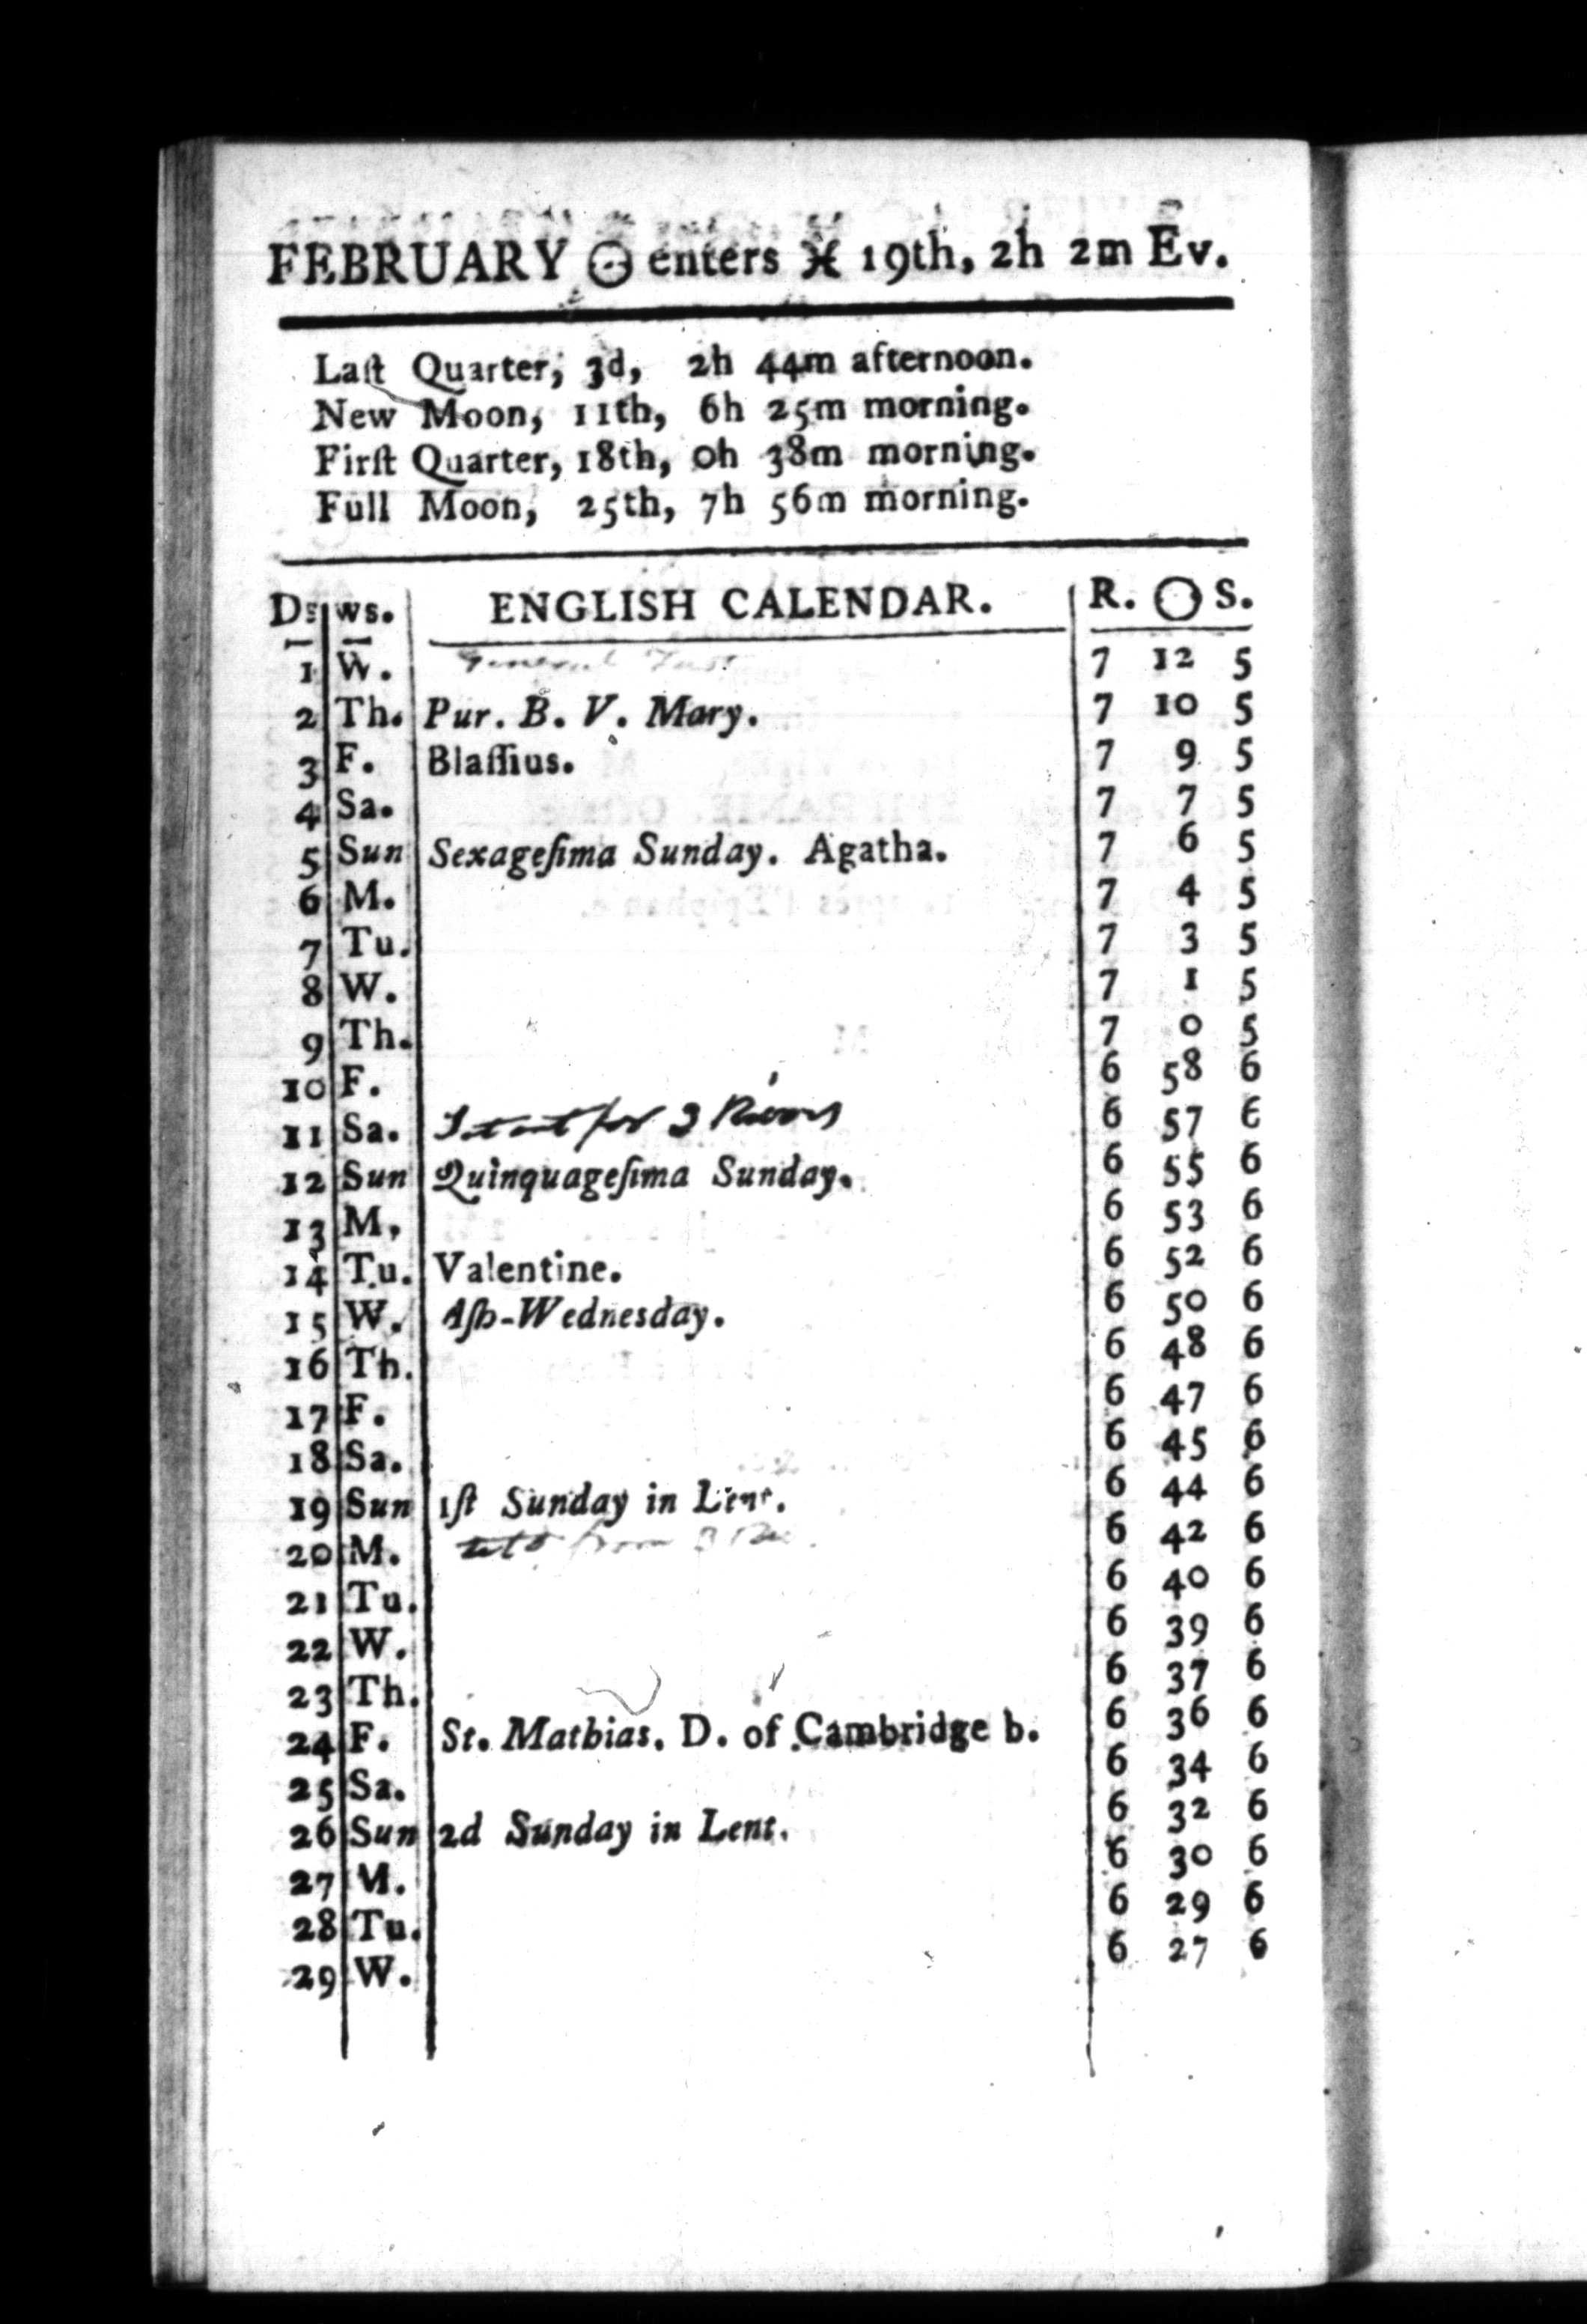 FEBRUARY ☉ enters ♓ 19th, 2h 2m Ev.
Laſt Quarter, 3d, 2h 44m afternoon.
New Moon, 11th, 6h 25m morning.
Firſt Quarter, 18th, 0h 38m morning.
Full Moon, 25th, 7h 56m morning.
Ds ws. ENGLISH CALENDAR. R. ☉ S.
1 W. General Fast 7 12 5
2 Th. Pur. B. V. Mary. 7 10 5
3 F. Blaſſius. 7 9 5
4 Sa. 7 7 5
5 Sun Sexageſima Sunday. Agatha. 7 6 5
6 M. 7 4 5
7 Tu. 7 3 5
8 W. 7 1 5
9 Th. 7 0 5
10 F. 6 58 6
11 Sa. for 3 Rivers 6 57 6
12 Sun Quinquageſima Sunday. 6 55 6
13 M. 6 53 6
14 Tu. Valentine. 6 52 6
15 W. Aſh-Wednesday. 6 50 6
16 Th. 6 48 6
17 F. 6 47 6
18 Sa. 6 45 6
19 Sun 1ſt Sunday in Lent. 6 44 6
20 M. from 3 6 42 6
21 Tu. 6 40 6
22 W. 6 39 6
23 Th. 6 37 6
24 F. St. Mathias. D. of Cambridge b. 6 36 6
25 Sa. 6 34 6
26 Sun 2d Sunday in Lent. 6 32 6
27 M. 6 30 6
28 Tu. 6 29 6
29 W. 6 27 6